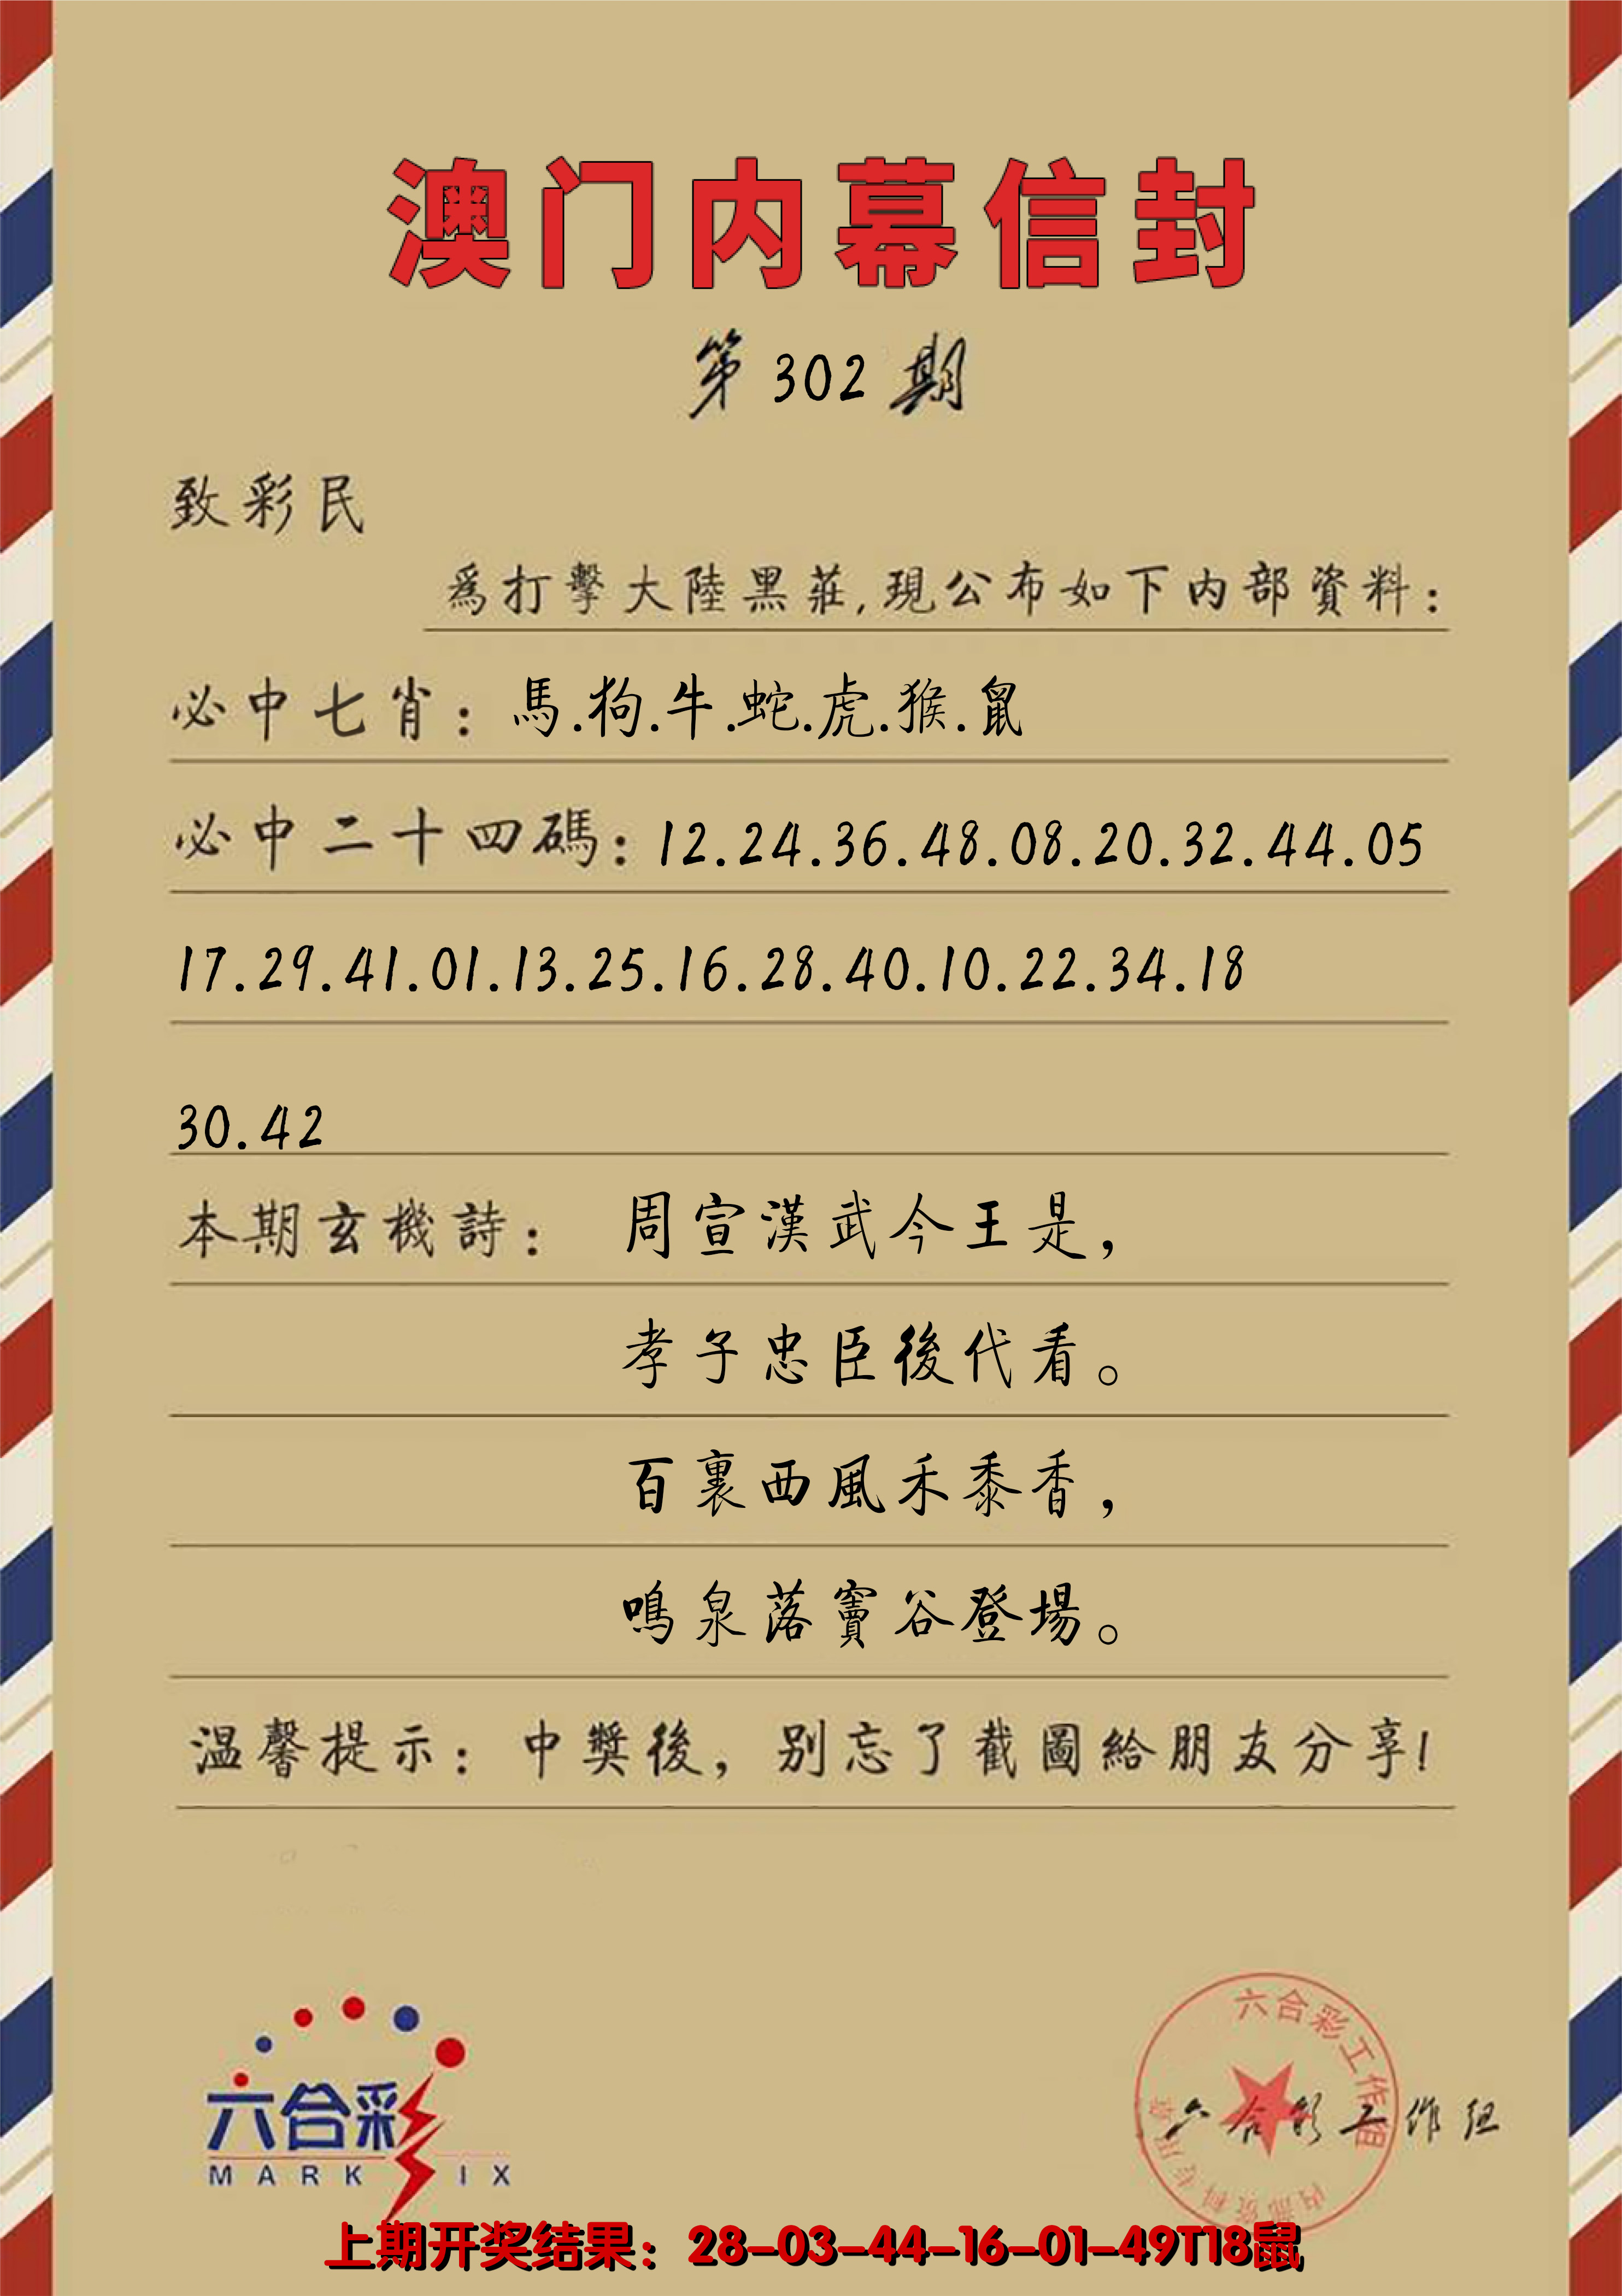 澳门内幕信封
第302期
致彩民
為打擊大陸黑莊,現公布如下内部資料：
必中七肖：馬.狗.牛.蛇.虎.猴.鼠
必中二十四碼：12.24.36.48.08.20.32.44.05
17.29.41.01.13.25.16.28.40.10.22.34.18
30.42
本期玄機詩： 周宣漢武今王是，
孝子忠臣後代看。
百裏西風禾黍香，
鳴泉落竇谷登場。
温馨提示：中獎後，别忘了截圖給朋友分享!
六合彩
MARK IX
六合彩工作组
内部资料专用章
六合彩工作组
上期开奖结果：28-03-44-16-01-49T18鼠